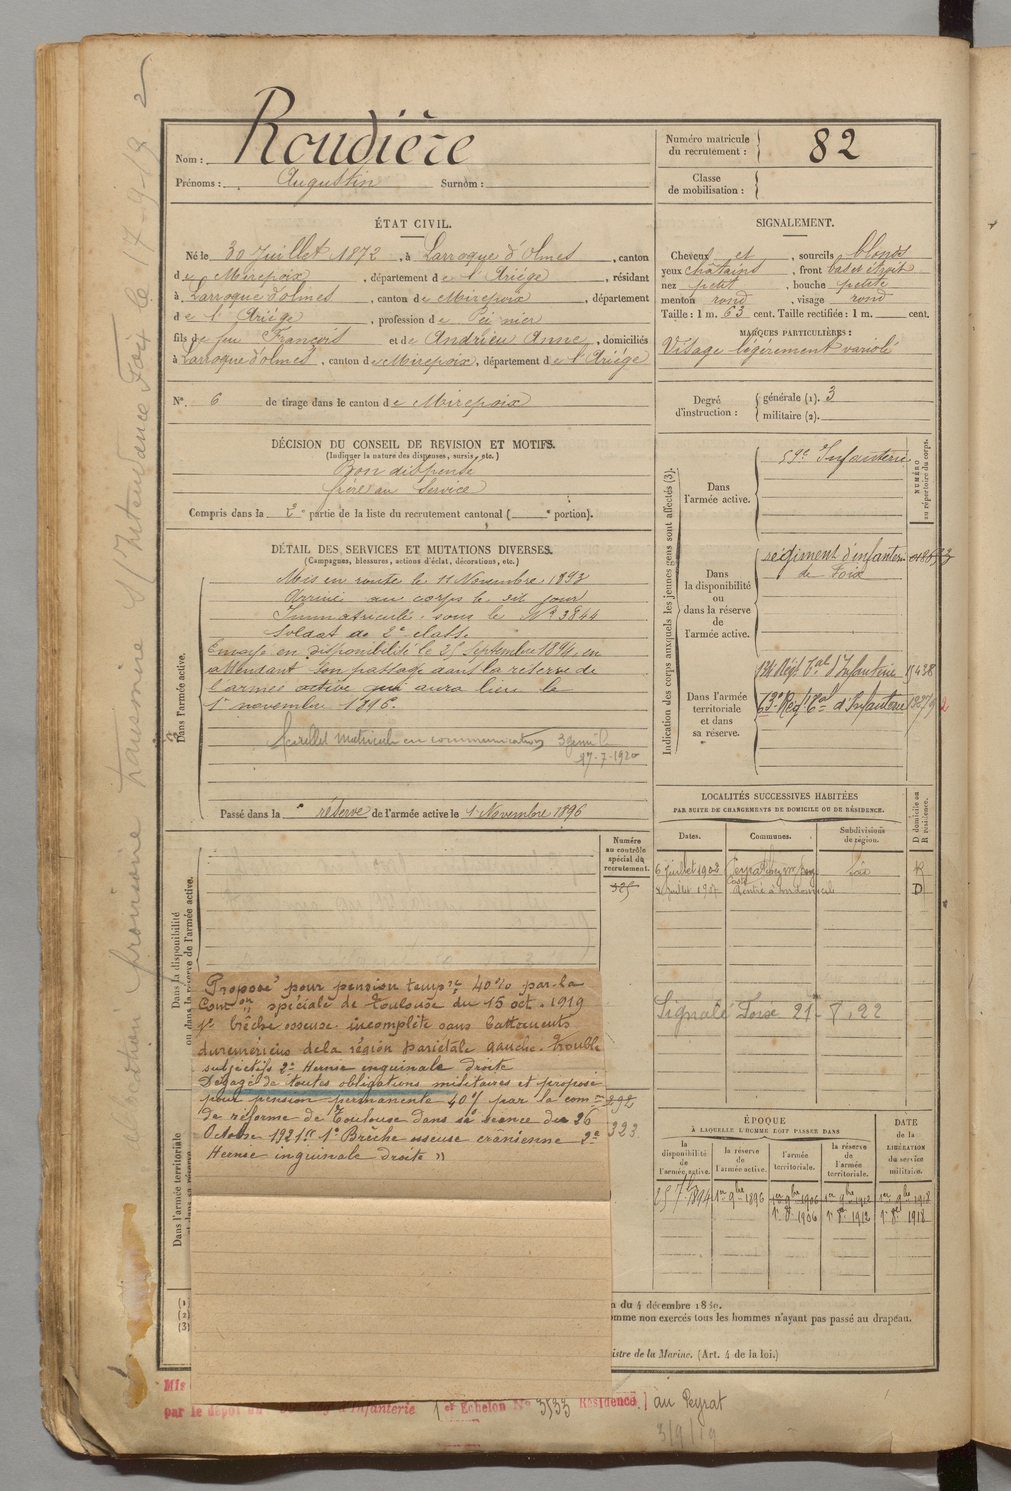 Nom : Roudière
Prénoms : Augustin Surnom :
Numéro matricule du recrutement : 82
Classe de mobilisation :
ÉTAT CIVIL.
Né le 30 Juillet 1872, à Larroque d'Olmes, canton
de Mirepoix, département de l'Ariége, résidant
à Larroque d'olmes, canton de Mirepoix, département
de l'Ariége, profession de Peignier
fils de feu François et de Andrieu Anne, domiciliés
à Larroque d'olmes, canton de Mirepoix, département de l'Ariége
N° 6 de tirage dans le canton de Mirepoix
SIGNALEMENT.
Cheveux et, sourcils blonds
yeux châtains, front bas et étroit
nez petit, bouche petite
menton rond, visage rond
Taille : 1 m. 63 cent. Taille rectifiée : 1 m. cent.
MARQUES PARTICULIÈRES :
Visage légèrement variolé
Degré d'instruction : générale (1). 3
militaire (2).
DÉCISION DU CONSEIL DE REVISION ET MOTIFS.
(Indiquer la nature des dispenses, sursis, etc.)
Bon dispensé
frère au Service
Compris dans la 2e partie de la liste du recrutement cantonal ( e portion).
DÉTAIL DES SERVICES ET MUTATIONS DIVERSES.
(Campagnes, blessures, actions d'éclat, décorations, etc.)
Dans l'armée active.
Mis en route le 11 Novembre 1893
Arrivé au corps le dit jour
Immatriculé sous le No 3844
Soldat de 2e classe
Envoyé en disponibilité le 25 Septembre 1894, en
attendant son passage dans la réserve de
l'armée active qui aura lieu le
1er novembre 1896.
feuillet matricule en communication
17-7-1920
Passé dans la réserve de l'armée active le 1 Novembre 1896
Indication des corps auxquels les jeunes gens sont affectés (3).
NUMÉRO au répertoire du corps.
Dans l'armée active.
59e Infanterie
Dans la disponibilité ou dans la réserve de l'armée active.
régiment d'infanterie
de Foix
Dans l'armée territoriale et dans sa réserve.
134 Régt Tal d'Infanterie
63e Régt Tal d'Infanterie
LOCALITÉS SUCCESSIVES HABITÉES
PAR SUITE DE CHANGEMENTS DE DOMICILE OU DE RÉSIDENCE.
Dates. Communes. Subdivisions de région. D domicile ou R résidence.
6 Juillet 1902 Peyrat Foix R
Rentré à son domicile D
Signalé Foix 21-8-22
Dans la disponibilité ou dans la réserve de l'armée active.
Numéro au contrôle spécial du recrutement.
Proposé pour pension tempre 40% par la
Comon spéciale de Toulouse du 15 oct. 1919
1° brêche osseuse incomplète sans battements
duremériens de la région pariétale gauche. trouble
subjectifs 2° Hernie inguinale droite
Dégagé de toutes obligations militaires et proposé
pour pension permanente 40% par la com
de réforme de Toulouse dans sa séance du 26
Octobre 1921 "1° Brêche osseuse crânienne 2°
Hernie inguinale droite "
323
Dans l'armée territoriale
ÉPOQUE
À LAQUELLE L'HOMME DOIT PASSER DANS
la disponibilité de l'armée active. la réserve de l'armée active. l'armée territoriale. la réserve de l'armée territoriale.
DATE de la LIBÉRATION du service militaire.
25 7bre 1894 1er 9bre 1896 1er 9bre 1906 1er 9bre 1912 1er 9bre 1918
1er 8bre 1906 1er 8bre 1912 1er 8bre 1918
(1)
(2)
(3)
du 4 décembre 1830.
omme non exercés tous les hommes n'ayant pas passé au drapeau.
istre de la Marine. (Art. 4 de la loi.)
Mis
par le dépôt du d'Infanterie 1er Echelon No 3533 Résidence, au Peyrat
3/9/19
allocation provisoire transmise S/ Intendance Foix le 17-9-19